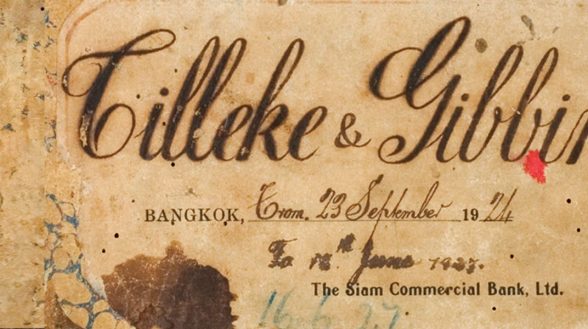 Tilleke & Gibbin
BANGKOK, From. 23 September 1924
To 18th June 1927.
The Siam Commercial Bank, Ltd.
16.6.27